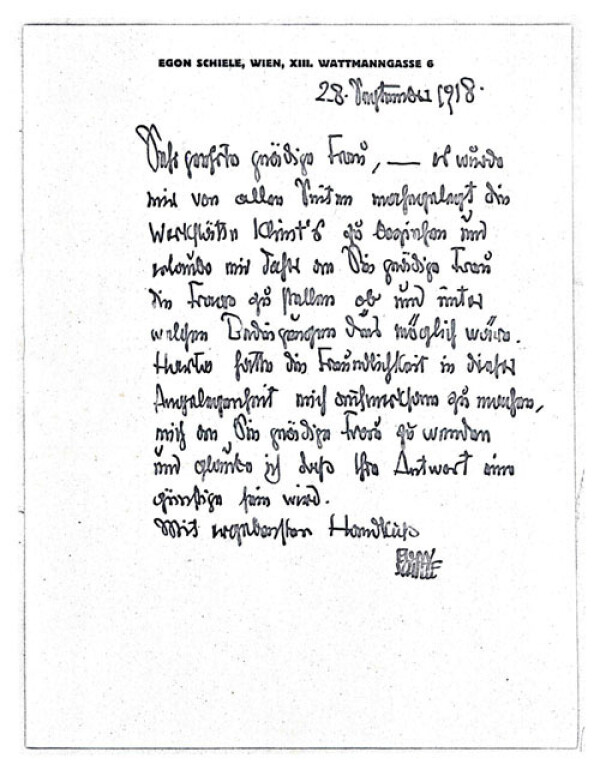 EGON SCHIELE, WIEN, XIII. WATTMANNGASSE 6
28. September 1918.
Sehr geehrte gnädige Frau, — es würde
mir von allen Seiten nahegelegt die
Werkstätte Klimt's zu beziehen und
erlaube mir daher an Sie gnädige Frau
die Frage zu stellen ob und unter
welchen Bedingungen das möglich wäre.
hatte die Freundlichkeit in dieser
Angelegenheit mich aufmerksam zu machen,
mich an Sie gnädige Frau zu wenden
und glaube ich dass Ihre Antwort eine
günstige sein wird.
Mit ergebensten Handkuß
EGON
SCHIELE